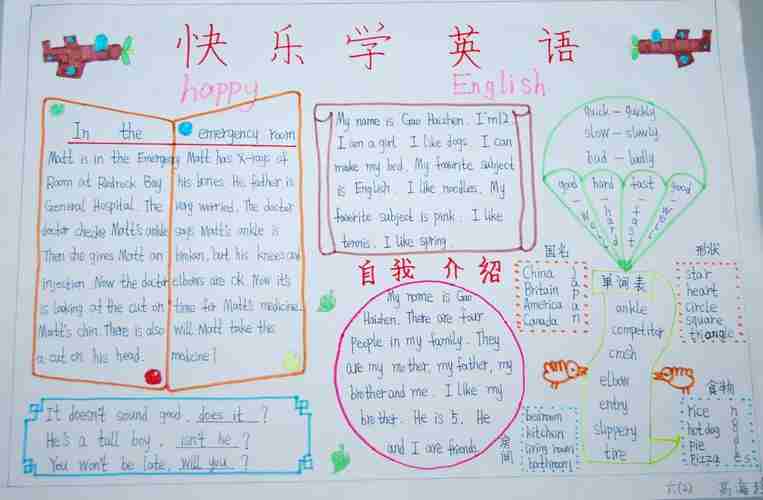 快乐学英语
happy English
In the emergency room
Matt is in the Emergency
Room at Redrock Bay
General Hospital. The
doctor checks Matt's ankle
Then she gives Matt an
injection. Now the doctor
is looking at the cut on
Matt's chin. There is also
a cut on his head.
Matt has X-rays of
his bones. His father is
very worried. The doctor
says Matt's ankle is
broken, but his knees and
elbows are ok. Now it's
time for Matt's medicine.
Will Matt take this
medicine?
It doesn't sound good, does it?
He's a tall boy, isn't he?
You won't be late, will you?
My name is Gao Haizhen. I'm 12.
I am a girl. I like dogs. I can
make my bed. My favourite subject
is English. I like noodles. My
favorite subject is pink. I like
tennis. I like spring.
自我介绍
My name is Gao
Haizhen. There are four
people in my family. They
are my mother, my father, my
brother and me. I like my
brother. He is 5. He
and I are friends.
quick - quickly
slow - slowly
bad - badly
good - well
hard - hard
fast - fast
good
国名
China
Britain
America
Canada
Japan
单词表
ankle
competitor
crash
elbow
entry
slippery
tire
形状
star
heart
circle
square
triangle
食物
rice
hot dog
pie
pizza
房间
bedroom
kitchen
living room
bathroom
六(2)
高海